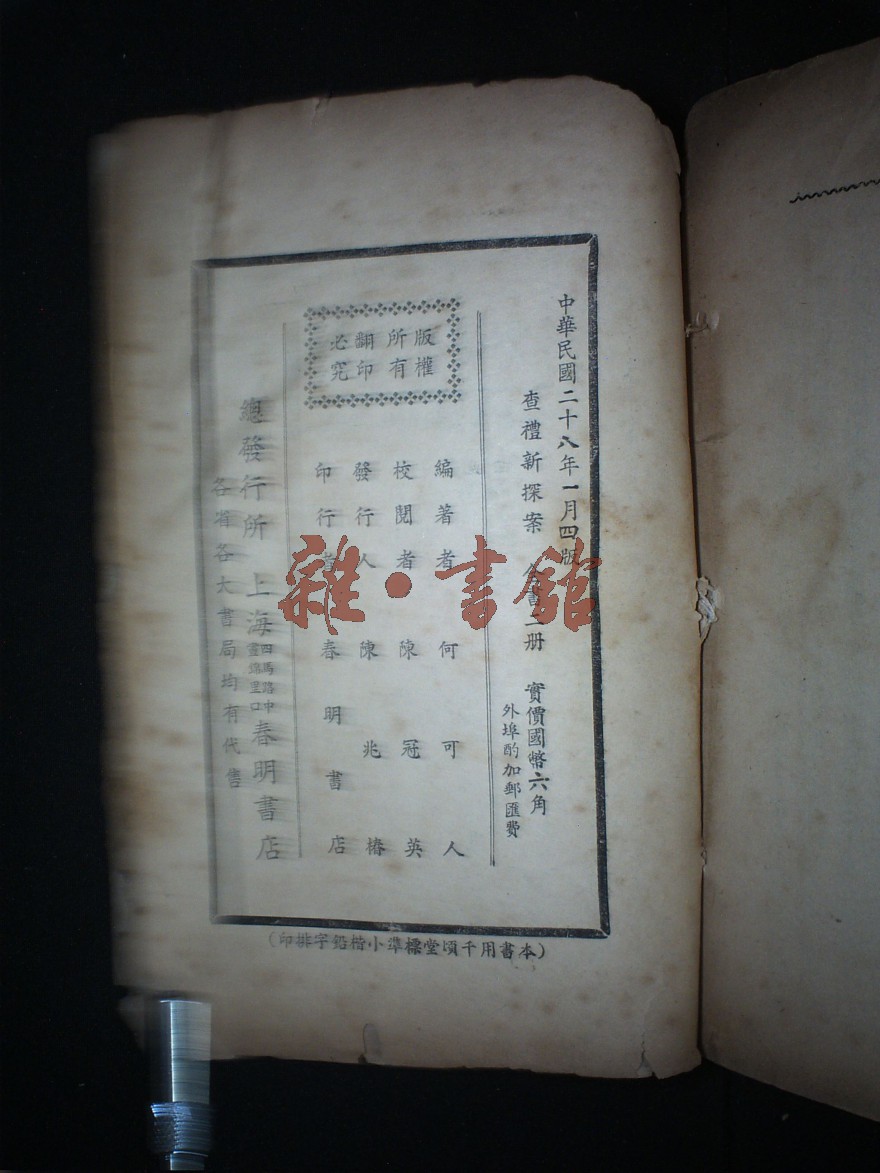 中華民國二十八年一月四版
查禮新探案　全書一册　實價國幣六角
外埠酌加郵匯費
版權
所有
翻印
必究
編著者　何可人
校閱者　陳冠英
發行人　陳兆椿
印行者　春明書店
總發行所　上海四馬路中畫錦里口春明書店
各省各大書局均有代售
（本書用千頃堂標準小楷鉛字排印）
雜·書館